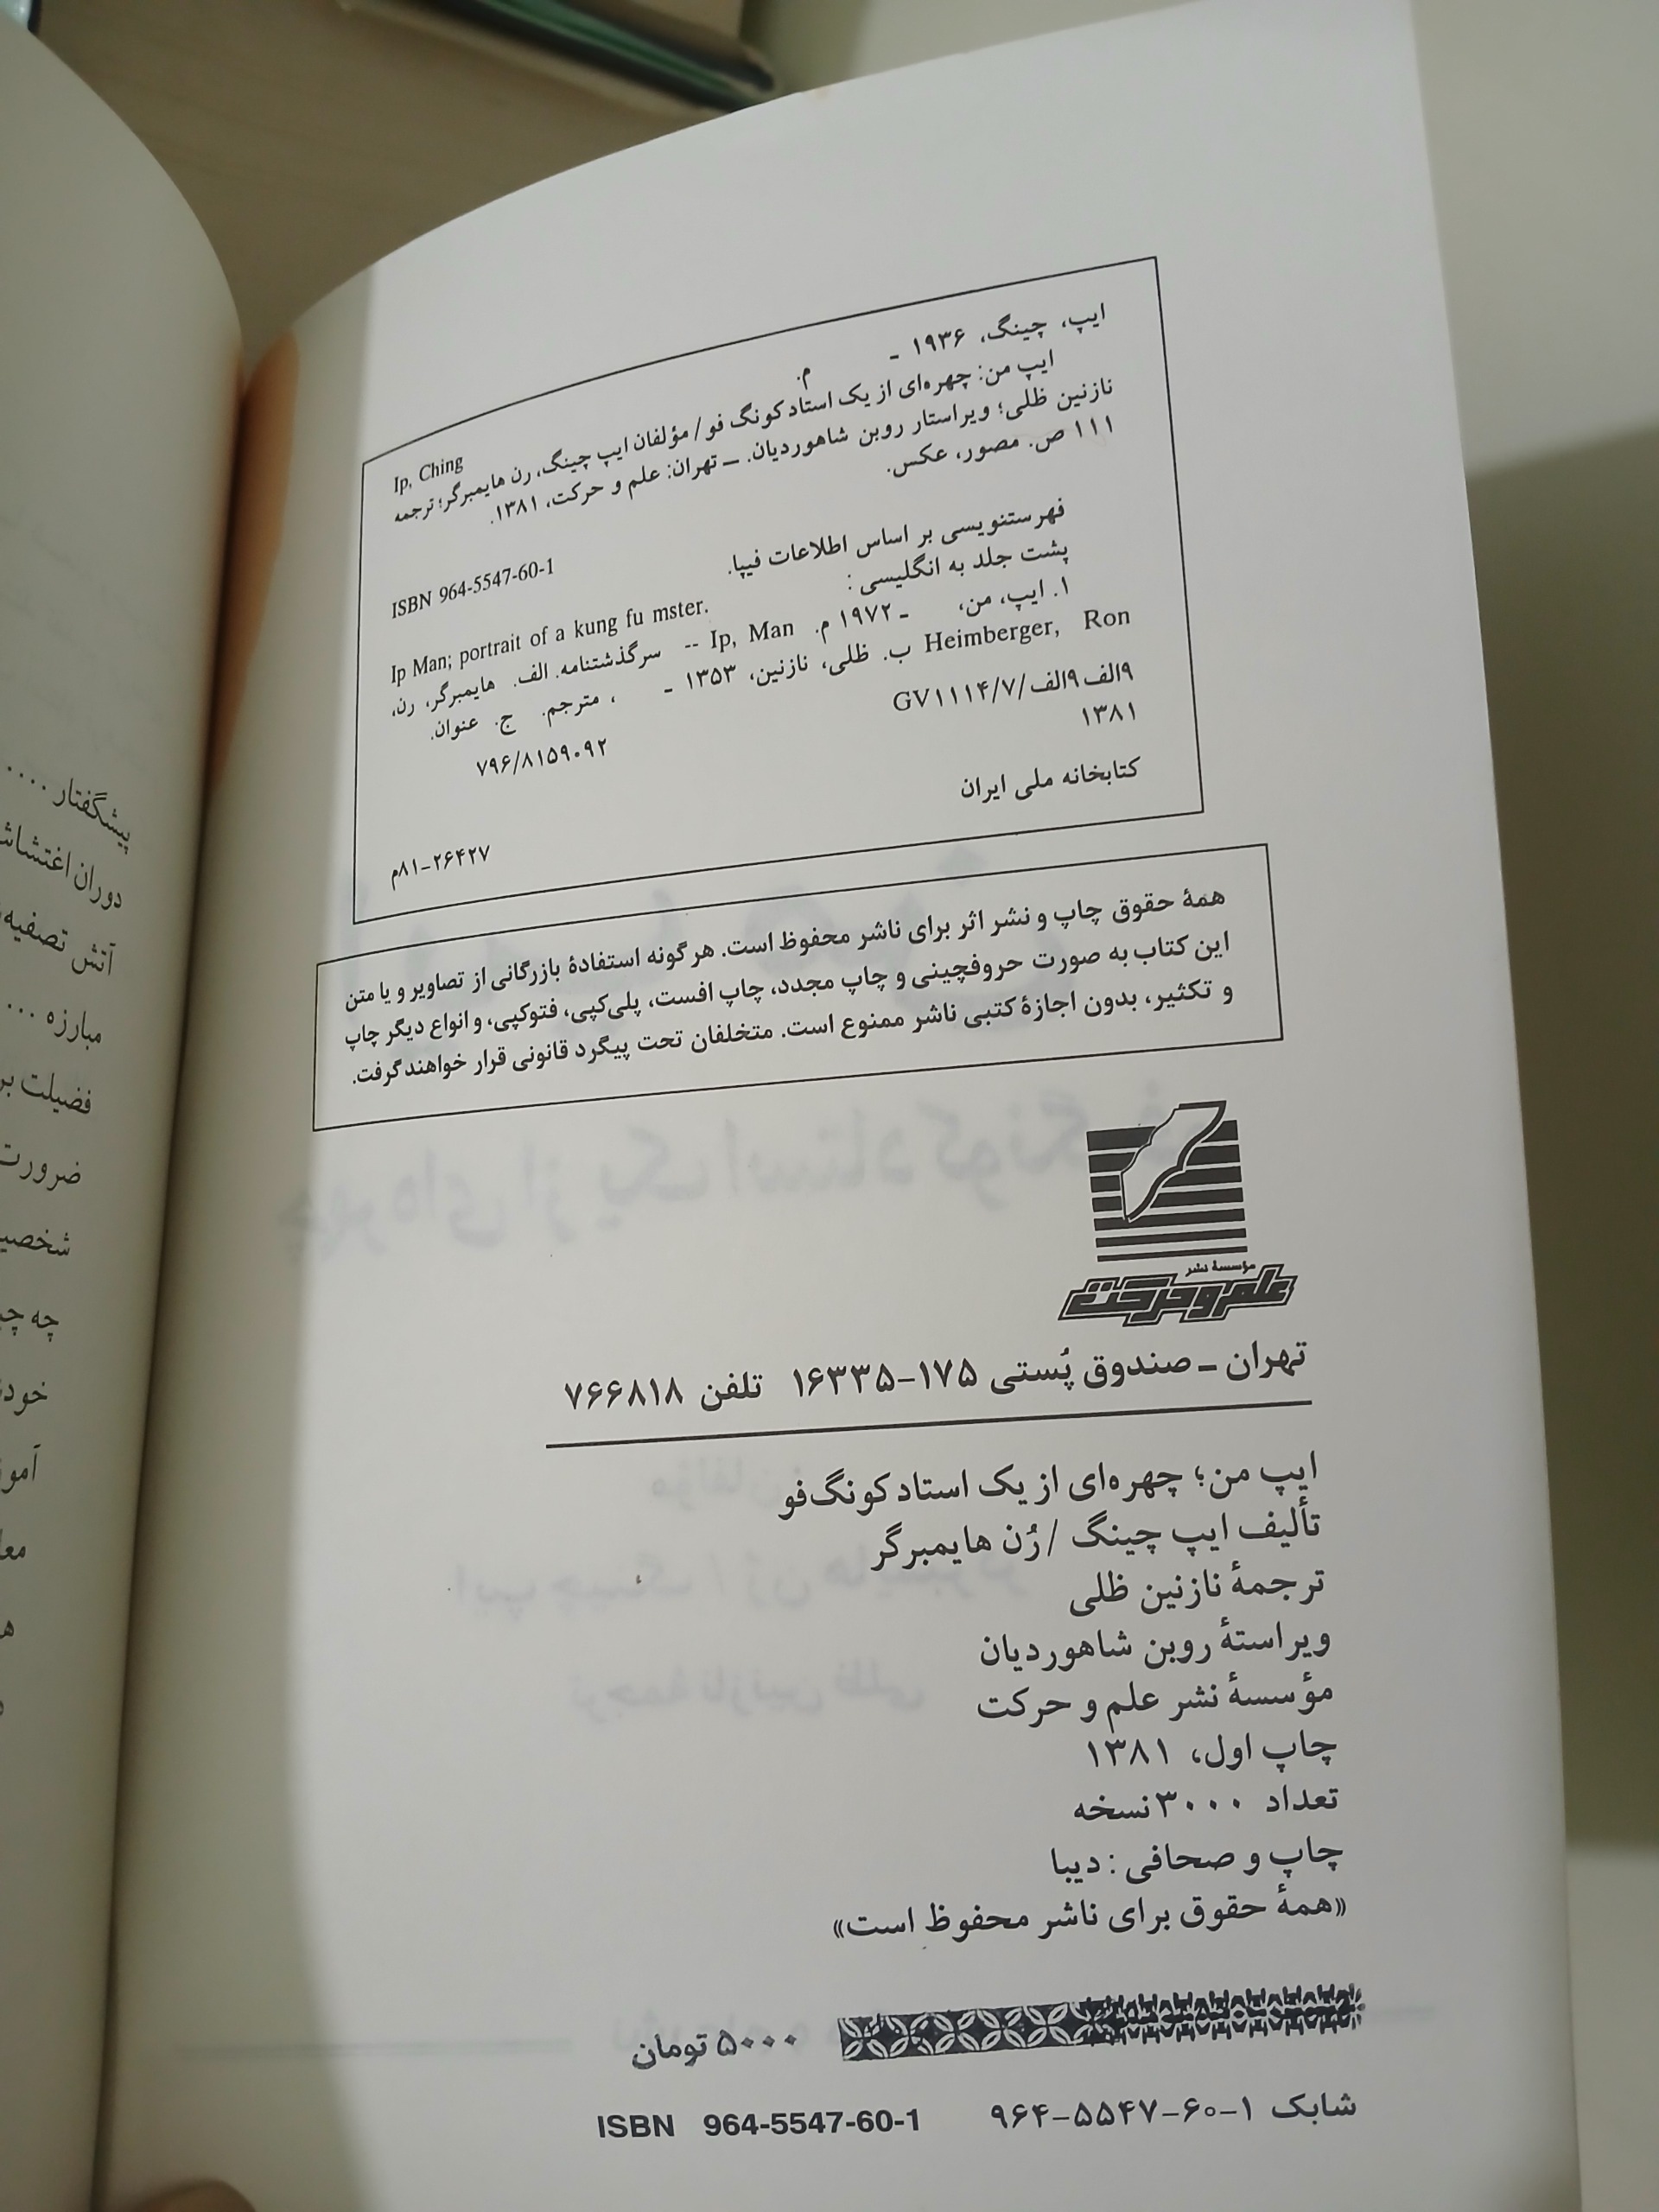 ایپ، چینگ، ۱۹۳۶ - م.
Ip, Ching
ایپ من: چهره‌ای از یک استاد کونگ فو / مؤلفان ایپ چینگ، رن هایمبرگر؛ ترجمه
نازنین ظلی؛ ویراستار روبن شاهوردیان. ــ تهران: علم و حرکت، ۱۳۸۱.
۱۱۱ ص. مصور، عکس.
ISBN 964-5547-60-1
فهرستنویسی بر اساس اطلاعات فیپا.
پشت جلد به انگلیسی:
Ip Man; portrait of a kung fu mster.
۱. ایپ، من، - ۱۹۷۲ م. Ip, Man -- سرگذشتنامه. الف. هایمبرگر، رن،
Heimberger, Ron ب. ظلی، نازنین، ۱۳۵۳ - ، مترجم. ج. عنوان.
۹الف۹الف/GV۱۱۱۴/۷ ۷۹۶/۸۱۵۹۰۹۲
۱۳۸۱
کتابخانه ملی ایران
۸۱-۲۶۴۲۷م
همهٔ حقوق چاپ و نشر اثر برای ناشر محفوظ است. هر گونه استفادهٔ بازرگانی از تصاویر و یا متن
این کتاب به صورت حروفچینی و چاپ مجدد، چاپ افست، پلی‌کپی، فتوکپی، و انواع دیگر چاپ
و تکثیر، بدون اجازهٔ کتبی ناشر ممنوع است. متخلفان تحت پیگرد قانونی قرار خواهند گرفت.
مؤسسهٔ نشر
علم و حرکت
تهران ــ صندوق پُستی ۱۷۵-۱۶۳۳۵ تلفن ۷۶۶۸۱۸
ایپ من؛ چهره‌ای از یک استاد کونگ‌فو
تألیف ایپ چینگ / رُن هایمبرگر
ترجمهٔ نازنین ظلی
ویراستهٔ روبن شاهوردیان
مؤسسهٔ نشر علم و حرکت
چاپ اول، ۱۳۸۱
تعداد ۳۰۰۰ نسخه
چاپ و صحافی: دیبا
«همهٔ حقوق برای ناشر محفوظ است»
۵۰۰۰ تومان
شابک ۱-۶۰-۵۵۴۷-۹۶۴ ISBN 964-5547-60-1
پیشگفتار ....
دوران
آتش تصفیه
مبارزه ...
فضیلت
ضرورت
چه